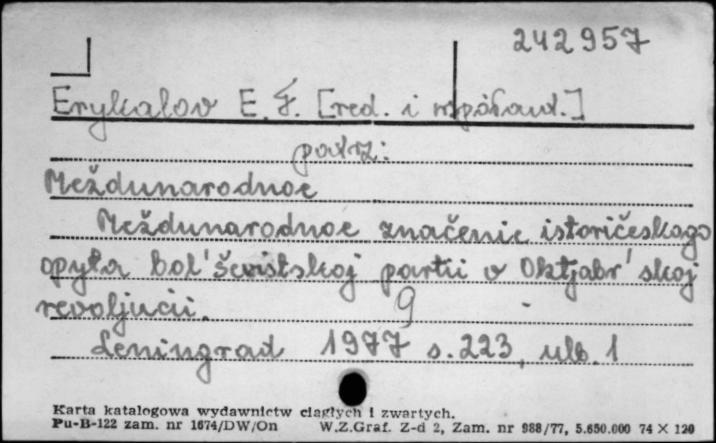 242957
Erykalov E. F. [red. i współaut.]
patrz:
Meždunarodnoe
Meždunarodnoe značenie istoričeskogo
opyta bol'ševistskoj partii v Oktjabr'skoj
revoljucii. 9
Leningrad 1977 s. 223, ulb. 1
Karta katalogowa wydawnictw ciągłych i zwartych.
Pu-B-122 zam. nr 1674/DW/On W.Z.Graf. Z-d 2, Zam. nr 988/77, 5.650.000 74 X 120